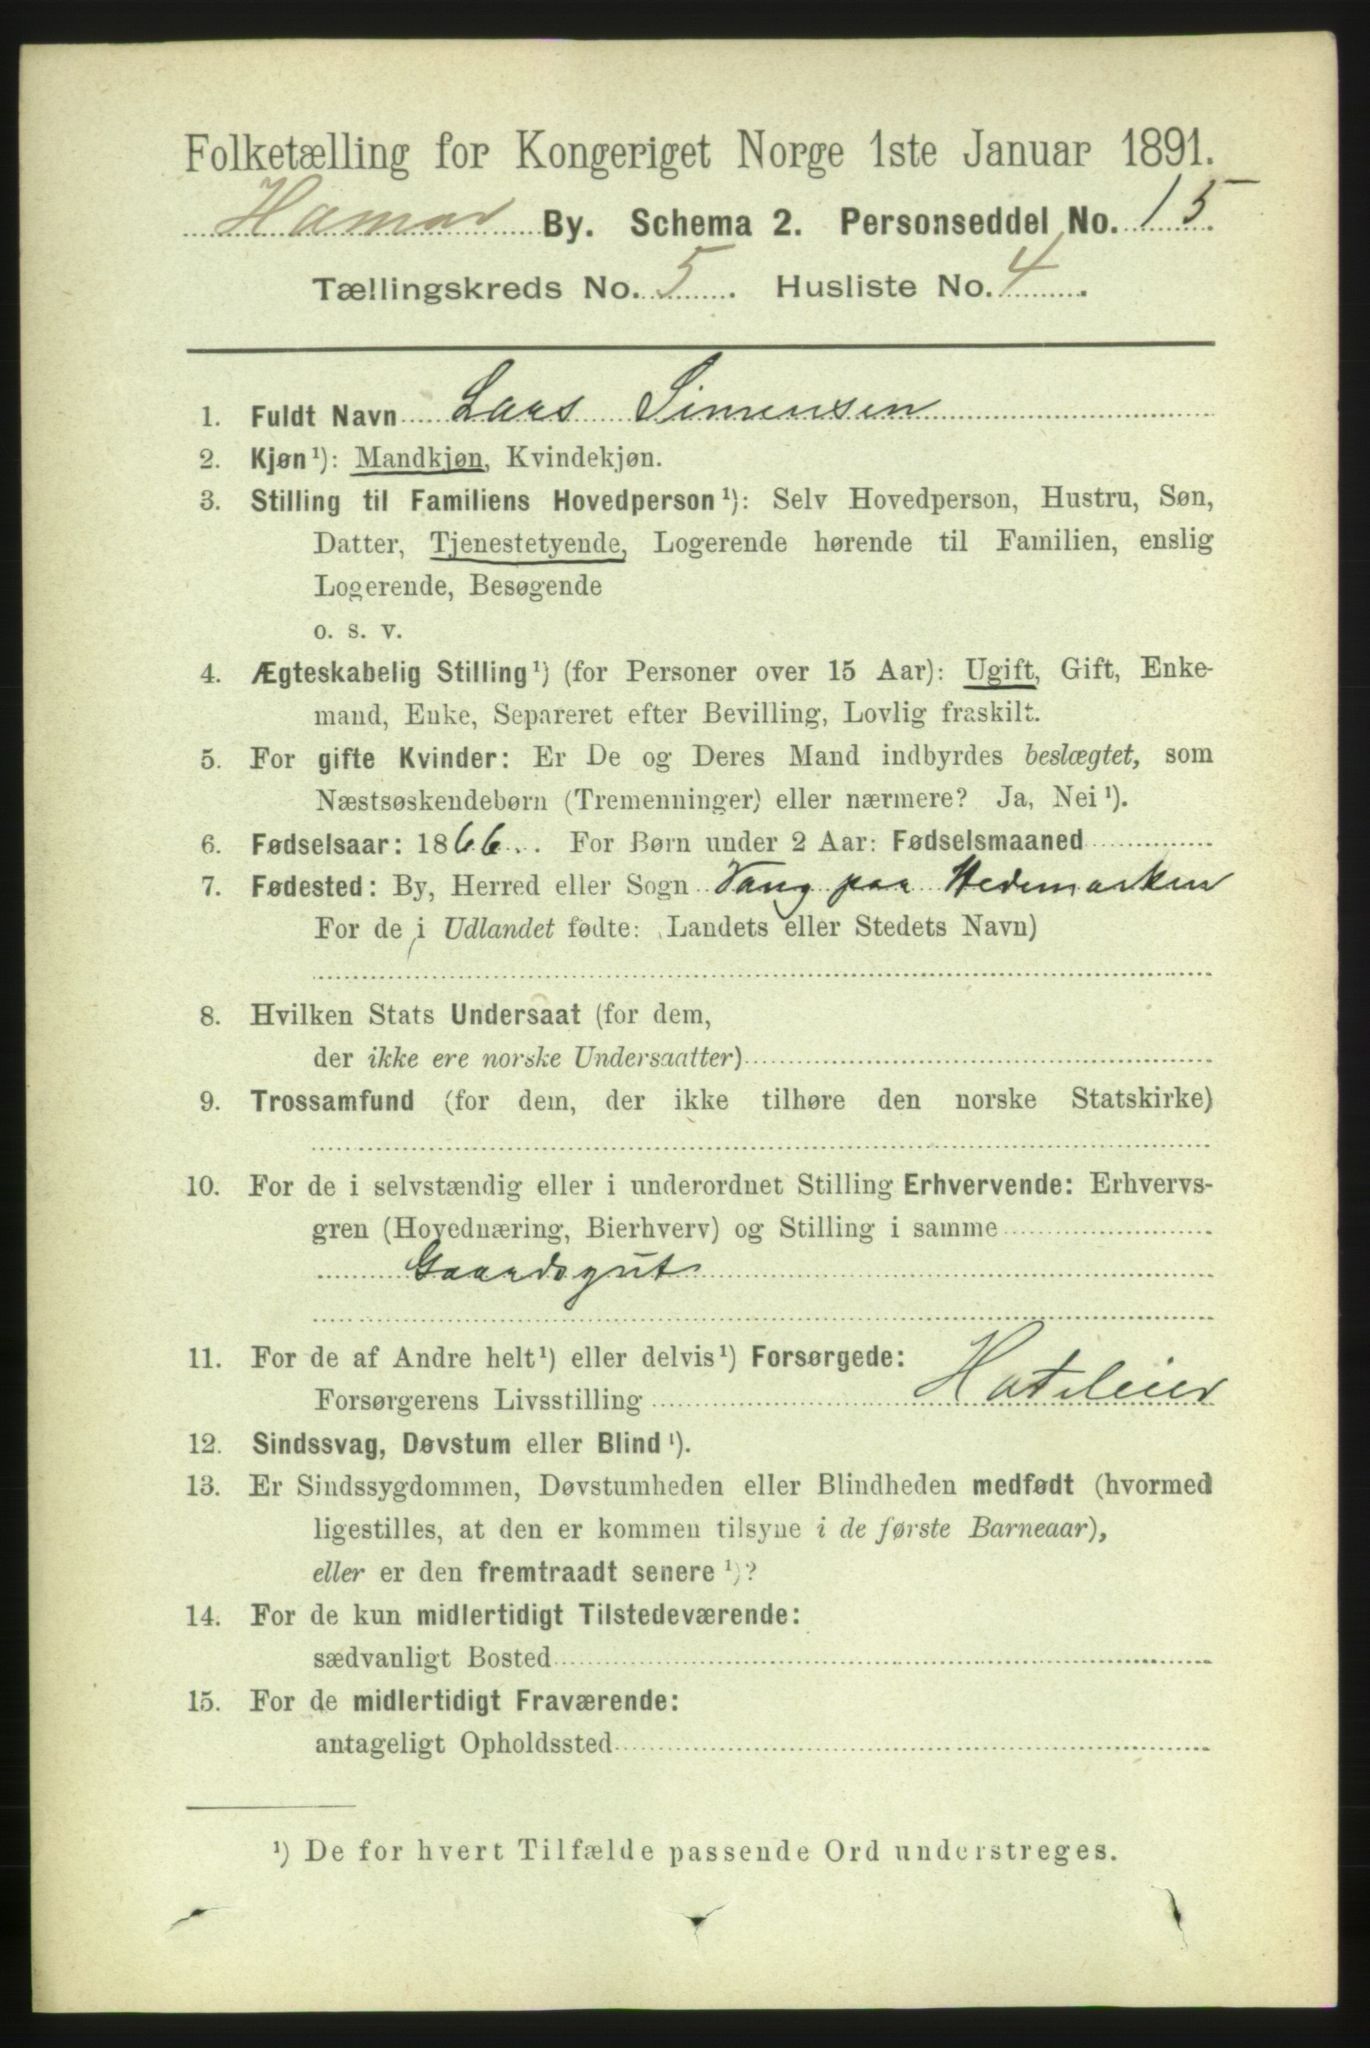 Folketælling for Kongeriget Norge 1ste Januar 1891.
Hamar By. Schema 2. Personseddel No. 15
Tællingskreds No. 5. Husliste No. 4.
1. Fuldt Navn Lars Simensen
2. Kjøn¹): Mandkjøn, Kvindekjøn.
3. Stilling til Familiens Hovedperson¹): Selv Hovedperson, Hustru, Søn,
Datter, Tjenestetyende, Logerende hørende til Familien, enslig
Logerende, Besøgende
o. s. v.
4. Ægteskabelig Stilling¹) (for Personer over 15 Aar): Ugift, Gift, Enke-
mand, Enke, Separeret efter Bevilling, Lovlig fraskilt.
5. For gifte Kvinder: Er De og Deres Mand indbyrdes beslægtet, som
Næstsøskendebørn (Tremenninger) eller nærmere? Ja, Nei¹).
6. Fødselsaar: 1866. For Børn under 2 Aar: Fødselsmaaned
7. Fødested: By, Herred eller Sogn Vang paa Hedemarken
For de i Udlandet fødte: (Landets eller Stedets Navn)
8. Hvilken Stats Undersaat (for dem,
der ikke ere norske Undersaatter)
9. Trossamfund (for dem, der ikke tilhøre den norske Statskirke)
10. For de i selvstændig eller i underordnet Stilling Erhvervende: Erhvervs-
gren (Hovednæring, Bierhverv) og Stilling i samme
Gaardsgut
11. For de af Andre helt¹) eller delvis¹) Forsørgede:
Forsørgerens Livsstilling Hoteleier
12. Sindssvag, Døvstum eller Blind¹).
13. Er Sindssygdommen, Døvstumheden eller Blindheden medfødt (hvormed
ligestilles, at den er kommen tilsyne i de første Barneaar),
eller er den fremtraadt senere¹)?
14. For de kun midlertidigt Tilstedeværende:
sædvanligt Bosted
15. For de midlertidigt Fraværende:
antageligt Opholdssted
¹) De for hvert Tilfælde passende Ord understreges.